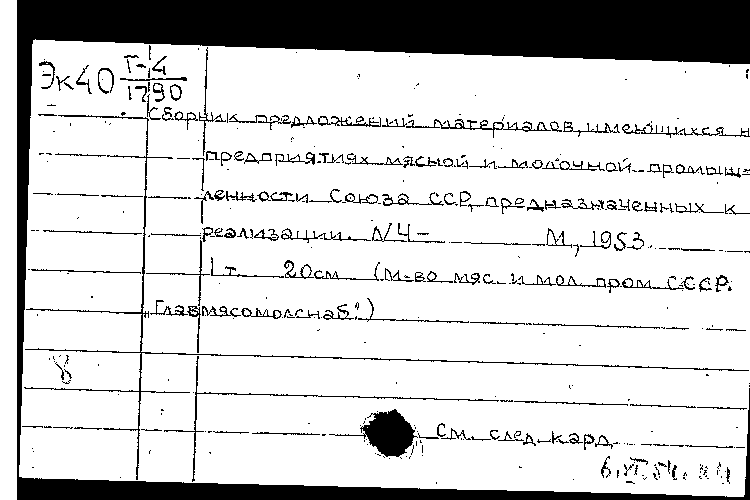 Эк40 Г-4
1290
Сборник предложений материалов, имеющихся н
предприятиях мясной и молочной промыш=
ленности Союза ССР, предназначенных к
реализации. N4- М, 1953.
1 т. 20см (М-во мяс. и мол. пром. СССР.
„Главмясомолснаб")
8
См. след. кард.
6.VI.54.